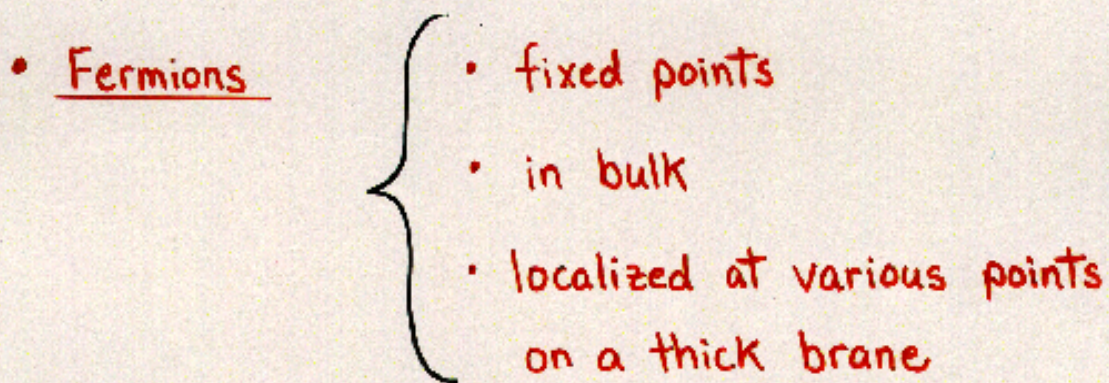 • Fermions
• fixed points
• in bulk
• localized at various points
on a thick brane